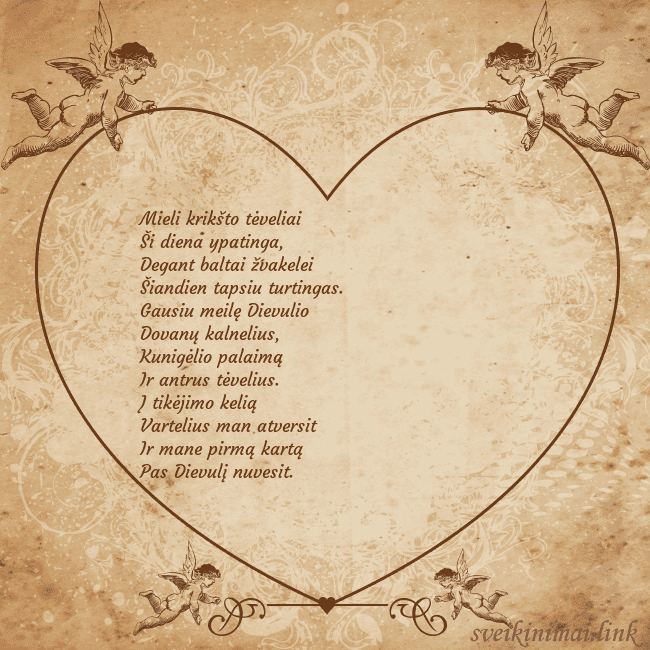 Mieli krikšto tėveliai
Ši diena ypatinga,
Degant baltai žvakelei
Šiandien tapsiu turtingas.
Gausiu meilę Dievulio
Dovanų kalnelius,
Kunigėlio palaimą
Ir antrus tėvelius.
Į tikėjimo kelią
Vartelius man atversit
Ir mane pirmą kartą
Pas Dievulį nuvesit.
sveikinimai.link